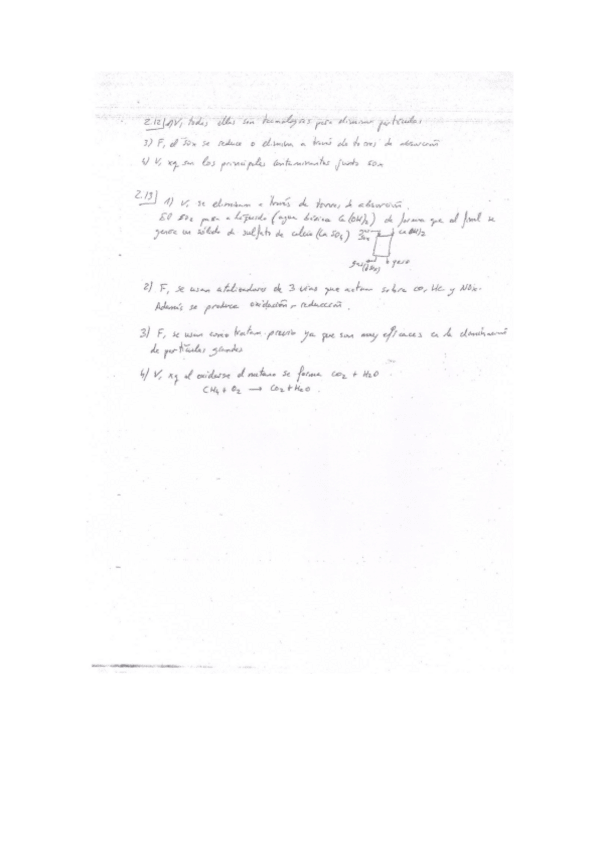 2.12) V, todas ellas son tecnologías para eliminar partículas
3) F, el SOx se reduce o elimina a través de torres de absorción
4) V, xq son los principales contaminantes junto SOx
2.13) 1) V, se eliminan a través de torres de absorción.
pasa a líquido (agua básica Ca(OH)2) de forma que al final se
genera un sólido de sulfato de calcio (Ca SO4)
Ca(OH)2
2) F, se usan catalizadores de 3 vías que actúan sobre CO, HC y NOx.
Además se produce oxidación y reducción.
3) F, se usan como tratam. previo ya que son muy eficaces en la eliminación
de partículas grandes
4) V, xq al oxidarse el metano se forma CO2 + H2O
CH4 + O2 → CO2 + H2O.